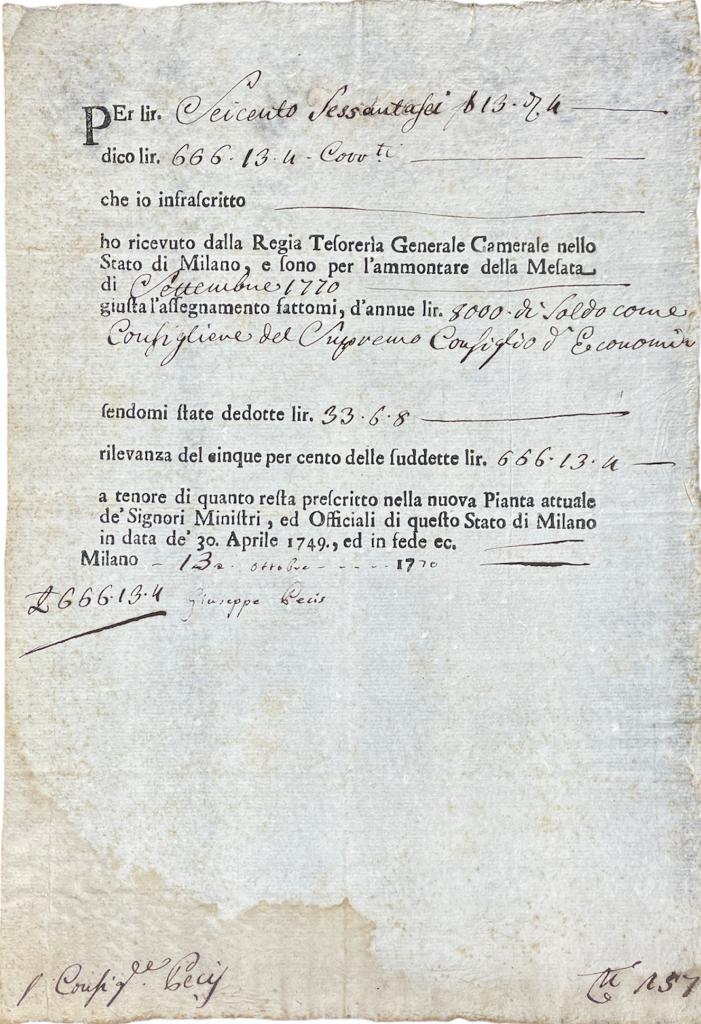 PEr lir. Seicento Sessantasei s 13. d. 4
dico lir. 666.13.4 - Corr.ti
che io infrascritto
ho ricevuto dalla Regia Tesorerìa Generale Camerale nello
Stato di Milano, e sono per l'ammontare della Mesata
di Settembre 1770
giusta l'assegnamento fattomi, d'annue lir. 8000. di Soldo come
Consigliere del Supremo Consiglio d'Economia
sendomi state dedotte lir. 33.6.8
rilevanza del cinque per cento delle suddette lir. 666.13.4
a tenore di quanto resta prescritto nella nuova Pianta attuale
de' Signori Ministri, ed Officiali di questo Stato di Milano
in data de' 30. Aprile 1749., ed in fede ec.
Milano - 13 Ottobre - - - - 1770
£ 666.13.4 Giuseppe Pecis
Consig.re Pecis
157